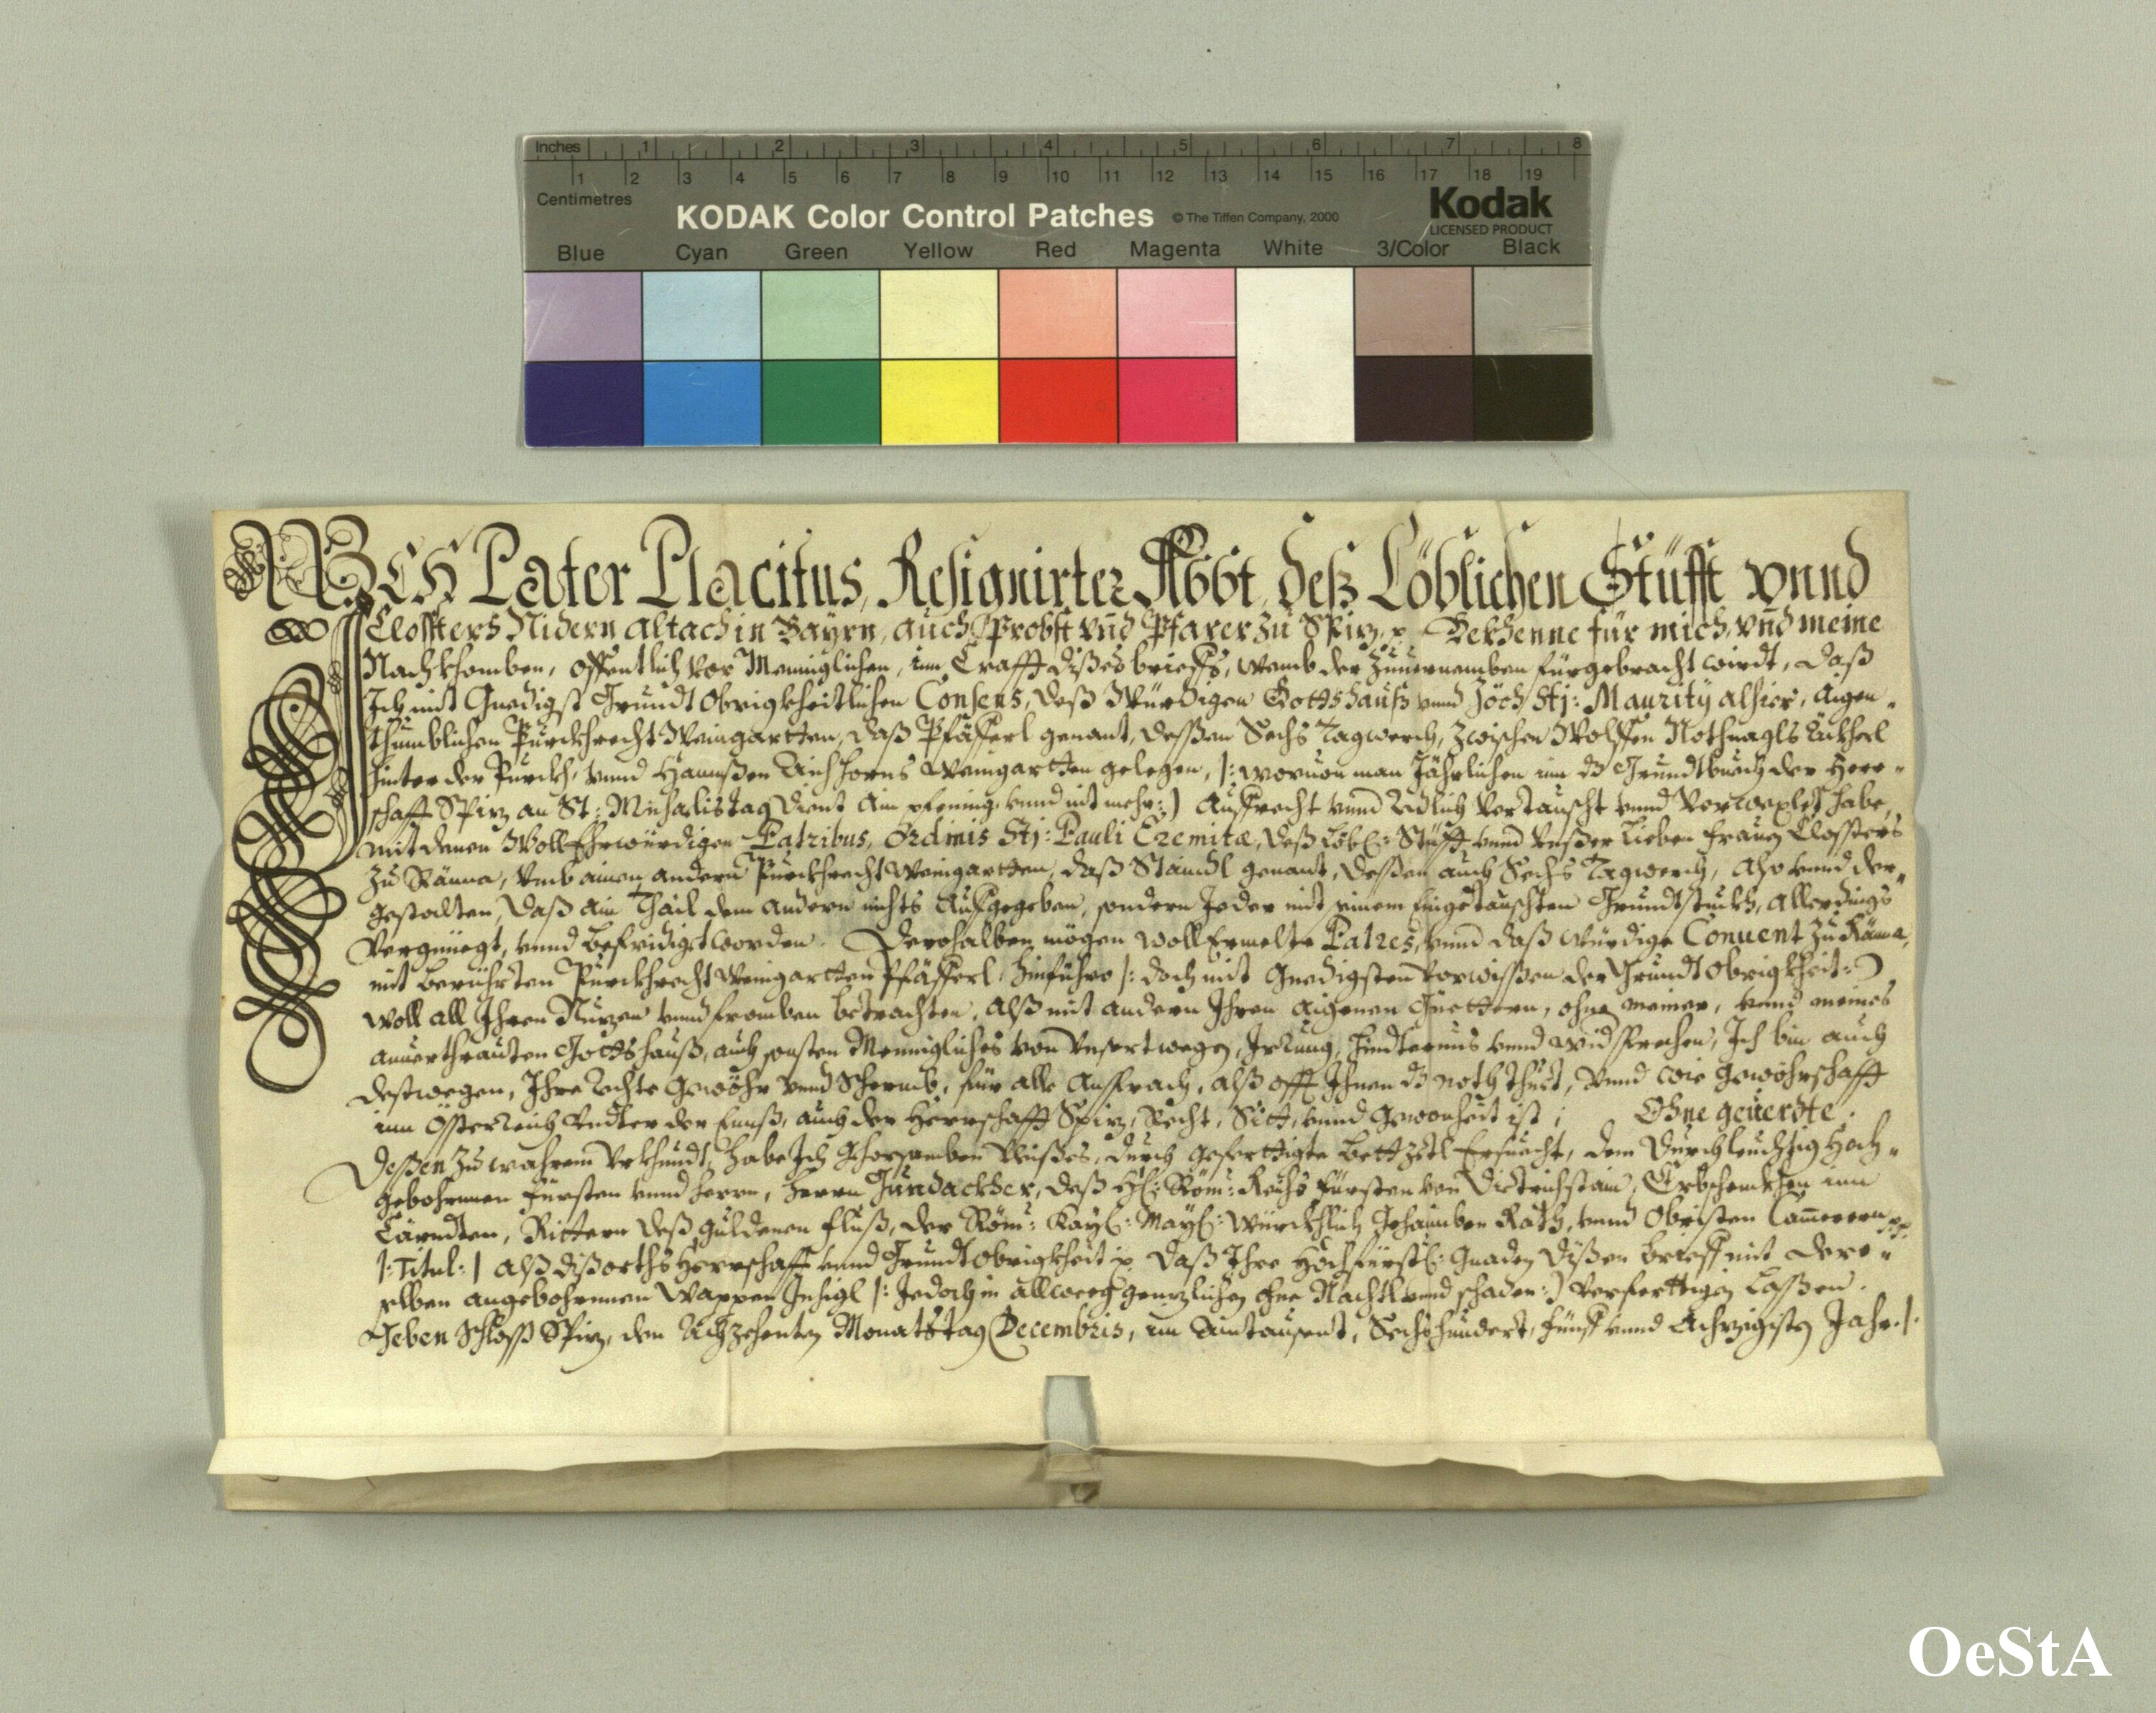 Inches 1 2 3 4 5 6 7 8
1 2 3 4 5 6 7 8 9 10 11 12 13 14 15 16 17 18 19
Centimetres
KODAK Color Control Patches © The Tiffen Company, 2000 Kodak
LICENSED PRODUCT
Blue Cyan Green Yellow Red Magenta White 3/Color Black
ICH Pater Placitus, Resignirter Abbt, deß Löblichen Stüfft vnnd
Clossters Nidern Altach in Bayrn, auch Probst vnd Pfarer zu Spiz, Bekhenne für mich, vnd meine
Nachkhomben, offentlich vor Menniglichen, inn Crafft dißes brieffs, wemb der zuuernemben fürgebracht wirdt, daß
Ich mit Gnedigst Grundt Obrigkheitlichen Consens, deß Würdigen Gottshauß vnnd Stj: Maurity alhier, aigen
thumblichen Purckhrecht Weingartten, daß Pfäfferl genant, dessen Sechs Tagwerch, zwischen Wolffen Nothnagls
hinter der Purckh, vnnd Hannßen Aichhorns Weingartten gelegen, /: woruon man Jährlichen inn dz Grundtbuech der Herr
schafft Spiz an St: Michaelis tag dient ain pfening, vnnd nit mehr :/ Auffrecht vnnd Redlich vertauscht vnnd verwexlet habe,
mit denen Woll Ehrwürdigen Patribus, Ordinis Stj: Pauli Eremitæ, deß Löbl: Stüfft vnnd Vnßer Lieben Frauen Clossters
zu Ränna, vmb ainen andern Purckhrecht Weingartten, daß Ständl genant, dessen auch Sechs Tagwerch, Also vnnd der
gestalten, daß ain Thail dem andern nichts Aufgegeben, sondern Jeder mit seinem Eingetauschten Grundtstuckh, allerdings
vergnüegt, vnnd befridigt worden. Derohalben mögen woll Ermelte Patres, vnnd daß würdige Conuent zu Ränna,
mit berührten Purckhrecht Weingartten Pfäfferl, hinführo /: doch mit Gnedigsten Vorwissen der Grundt Obrigkheit :/
woll all Ihren Nuzen vnnd fromben betrachten, alß mit andern Ihren aigenen Guettern, ohne meiner, vnnd meines
anuerthrauten Gottshauß, auch sonsten Menigliches von Vnsert wegen, Irrung, hindternus vnnd widsprechen, Ich bin auch
destwegen, Ihre Rechte Gewöhr vnnd Schermb, für alle Ansprach, alß offt Ihnen dz noth thuet, vnnd wie Gewöhrschafft
inn Össterreich Vndter der Ennß, auch der Herrschafft Spiz, Recht, Sitt, vnnd Gewonheit ist; Ohne geuerdte.
Deßen zu wahrem Vrkhundt, habe Ich Gehorsamben Vleißes, durch gefertigte Bettzetl Ersuecht, dem Durchleuchtig Hoch
gebohrnnen Fürsten vnnd Herrn, Herrn Gundackher, deß Hl: Röm: Reichs Fürsten von Dietrichstain, Erbschenckhen inn
Cärndten, Rittern deß guldenen Fluß, der Röm: Kayl: Mayl: Würckhlich Gehaimben Rath, vnnd Obristen Camerern
/: Titul: / Alß dißorths Herrschafft vnnd Grundt Obrigkheit, daß Ihre Hochfürstl: Gnaden dißen brieff mit dero
selben angebohrnnen Wappen Insigl /: Jedoch in allweeg genzlichen ohne Nachtl vnnd schaden :/ verferttigen Laßen.
Geben Schloß Spiz, den Achzehenten Monats tag Decembris, im Aintausent, Sechshundert, fünff vnnd Achzigisten Jahr.
OeStA